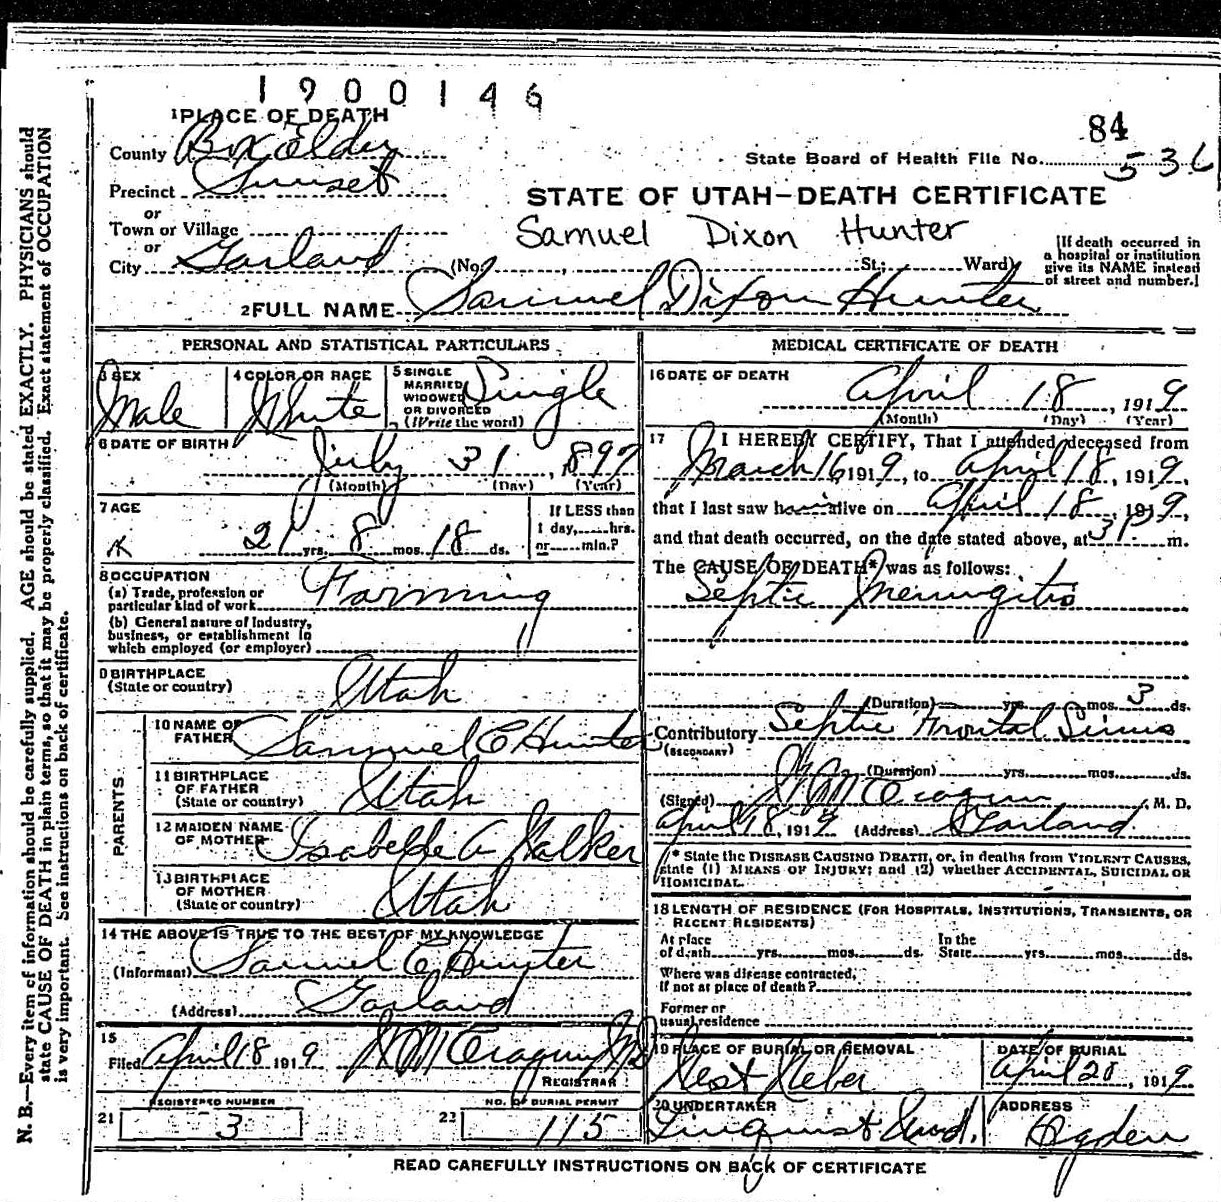 1900146
1 PLACE OF DEATH
84
County Box Elder
State Board of Health File No. 536
Precinct Sunset
STATE OF UTAH—DEATH CERTIFICATE
or
Town or Village
Samuel Dixon Hunter
or
City Garland (No. , St.; Ward)
[If death occurred in
a hospital or institution
give its NAME instead
of street and number.]
2 FULL NAME Samuel Dixon Hunter
PERSONAL AND STATISTICAL PARTICULARS
3 SEX
Male
4 COLOR OR RACE
White
5 SINGLE
MARRIED
WIDOWED
OR DIVORCED
(Write the word)
Single
6 DATE OF BIRTH
July 31, 1897
(Month) (Day) (Year)
7 AGE
21 yrs. 8 mos. 18 ds.
If LESS than
1 day, hrs.
or min.?
8 OCCUPATION
(a) Trade, profession or
particular kind of work Farming
(b) General nature of Industry,
business, or establishment in
which employed (or employer) "
9 BIRTHPLACE
(State or country) Utah
PARENTS
10 NAME OF
FATHER Samuel C Hunter
11 BIRTHPLACE
OF FATHER
(State or country) Utah
12 MAIDEN NAME
OF MOTHER Isabelle A Walker
13 BIRTHPLACE
OF MOTHER
(State or country) Utah
14 THE ABOVE IS TRUE TO THE BEST OF MY KNOWLEDGE
(Informant) Samuel C Hunter
(Address) Garland
15
Filed April 18 1919
REGISTRAR
REGISTERED NUMBER
21 3
NO. OF BURIAL PERMIT
22 115
MEDICAL CERTIFICATE OF DEATH
16 DATE OF DEATH
April 18, 1919
(Month) (Day) (Year)
17 I HEREBY CERTIFY, That I attended deceased from
March 16, 1919, to April 18, 1919,
that I last saw him alive on April 18, 1919,
and that death occurred, on the date stated above, at 3 P m.
The CAUSE OF DEATH* was as follows:
Septic Meningitis
(Duration) yrs. mos. 3 ds.
Contributory Septic Frontal Sinus
(SECONDARY)
(Duration) yrs. mos. ds.
(Signed) M. D.
April 18, 1919 (Address) Garland
* State the DISEASE CAUSING DEATH, or, in deaths from VIOLENT CAUSES,
state (1) MEANS OF INJURY; and (2) whether ACCIDENTAL, SUICIDAL OR
HOMICIDAL.
18 LENGTH OF RESIDENCE (FOR HOSPITALS, INSTITUTIONS, TRANSIENTS, OR
RECENT RESIDENTS)
At place
of death yrs. mos. ds.
In the
State yrs. mos. ds.
Where was disease contracted,
If not at place of death?
Former or
usual residence
19 PLACE OF BURIAL OR REMOVAL
West Weber
DATE OF BURIAL
April 20, 1919
20 UNDERTAKER
ADDRESS
Ogden
READ CAREFULLY INSTRUCTIONS ON BACK OF CERTIFICATE
N. B.—Every item of information should be carefully supplied. AGE should be stated EXACTLY. PHYSICIANS should
state CAUSE OF DEATH in plain terms, so that it may be properly classified. Exact statement of OCCUPATION
is very important. See instructions on back of certificate.